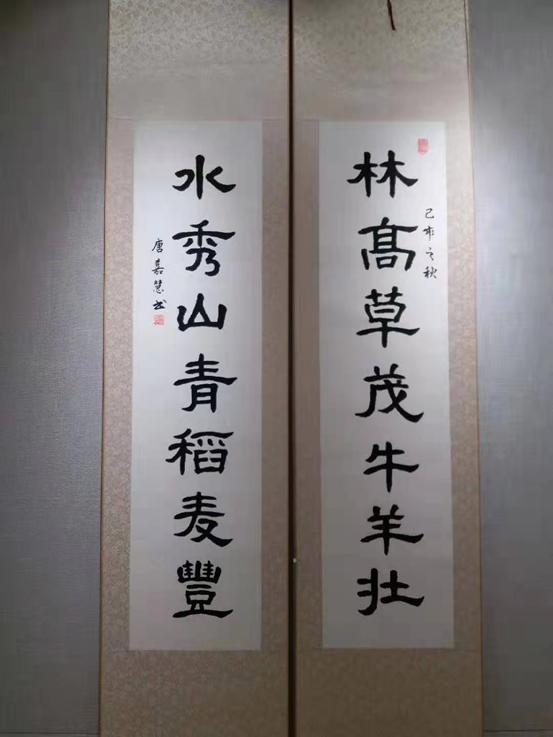 林高草茂牛羊壮
己亥之秋
水秀山青稻麦豐
唐嘉慧书